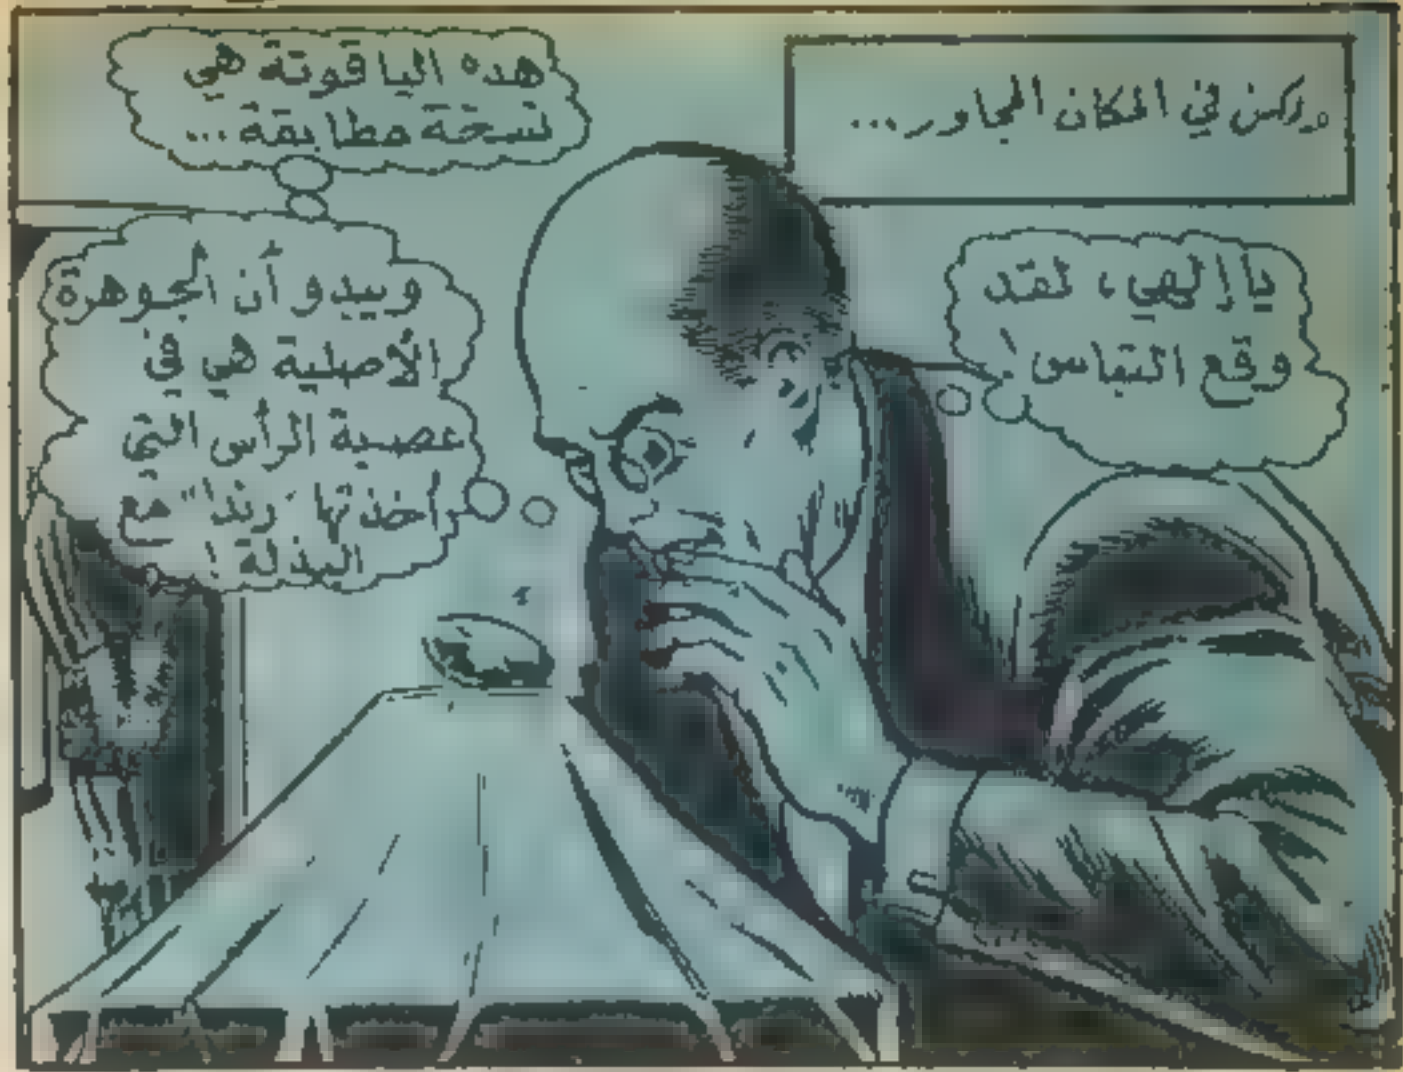 ولكن في المكان المجاور...
يا إلهي، لقد
وقع التباس!
هذه الياقوتة هي
نسخة مطابقة...
ويبدو أن الجوهرة
الأصلية هي في
عصبة الرأس التي
أخذتها "رندا" مع
البذلة!